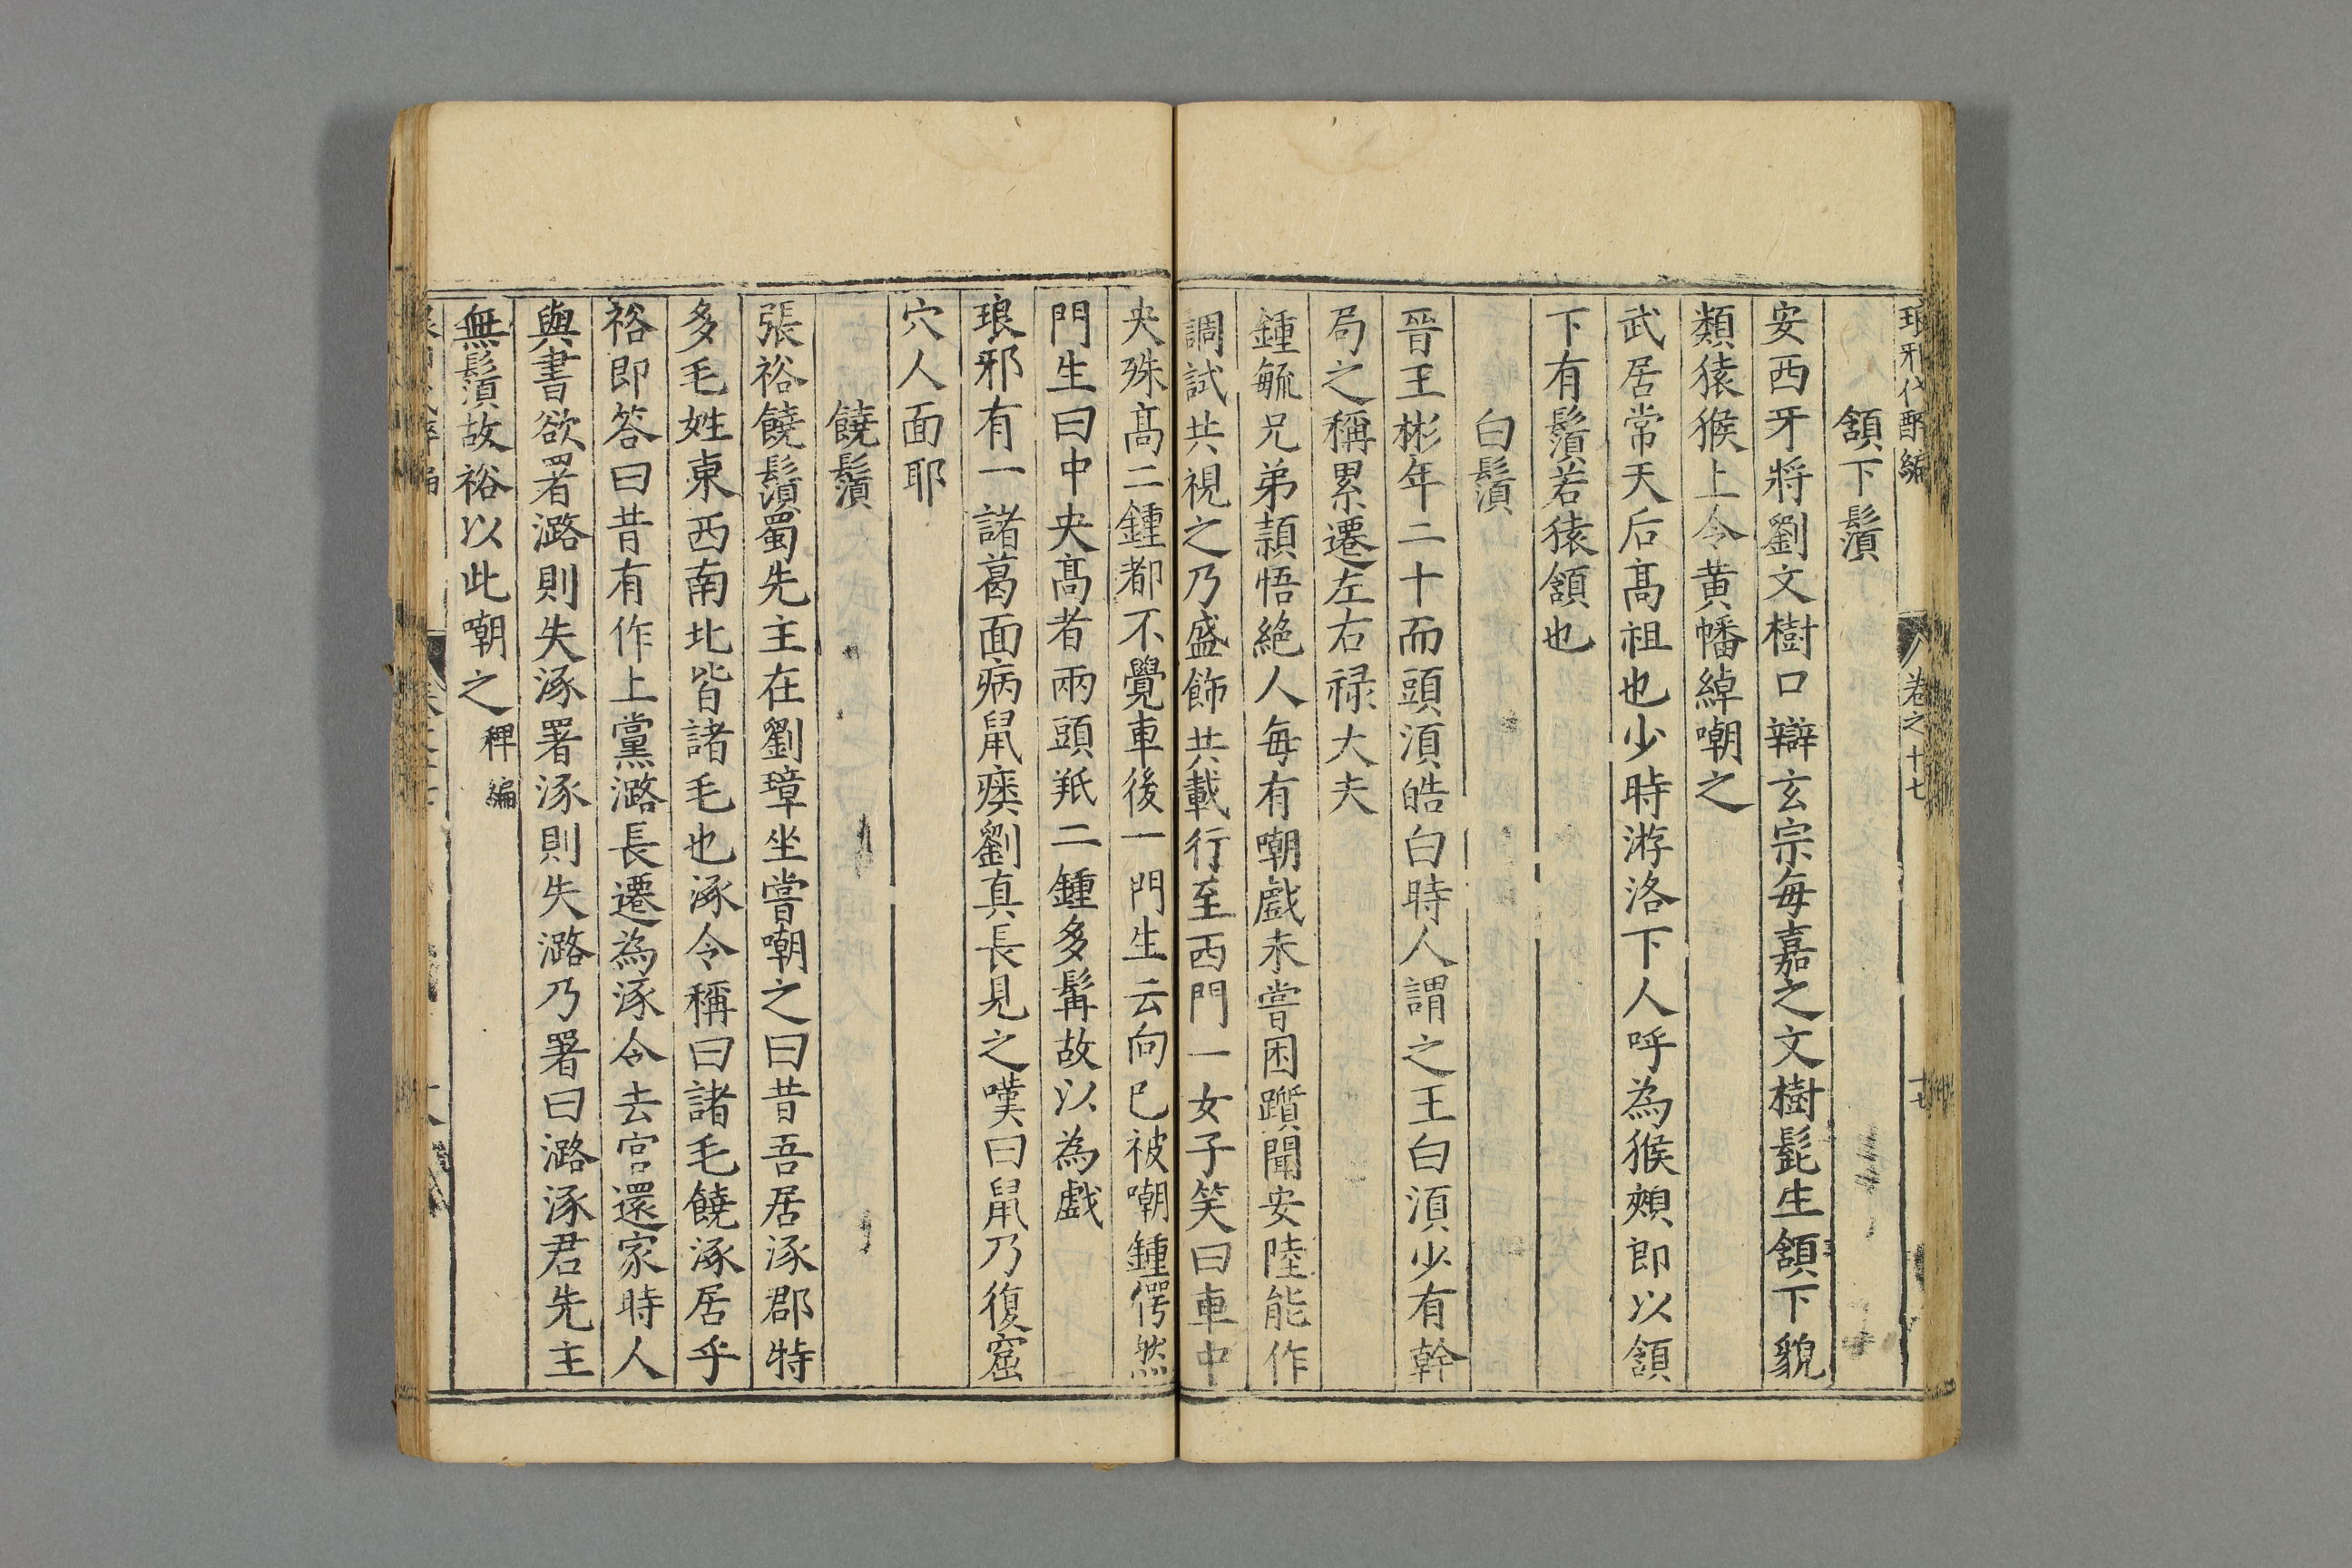 琅邪代醉編
卷之十七
十七
頷下鬚
安西牙將劉文樹口辯玄宗每嘉之文樹髭生頷下貌
類猿猴上令黄幡綽嘲之
武居常天后髙祖也少時游洛下人呼為猴頰即以頷
下有鬚若猿頷也
白鬚
晉王彬年二十而頭湏皓白時人謂之王白湏少有幹
局之稱累遷左右禄大夫
鍾毓兄弟頴悟絶人每有嘲戯未嘗困躓聞安陸能作
調試共視之乃盛飾共載行至西門一女子笑曰車中
央殊髙二鍾都不覺車後一門生云向已被嘲鍾愕然
門生曰中央髙者兩頭羝二鍾多髯故以為戯
琅邪有一諸葛面病鼠瘻劉真長見之嘆曰鼠乃復窟
穴人面耶
饒鬚
張裕饒鬚蜀先主在劉璋坐嘗嘲之曰昔吾居涿郡特
多毛姓東西南北皆諸毛也涿令稱曰諸毛饒涿居乎
裕即答曰昔有作上黨潞長遷為涿令去官還家時人
與書欲署潞則失涿署涿則失潞乃署曰潞涿君先主
無鬚故裕以此嘲之 稗編